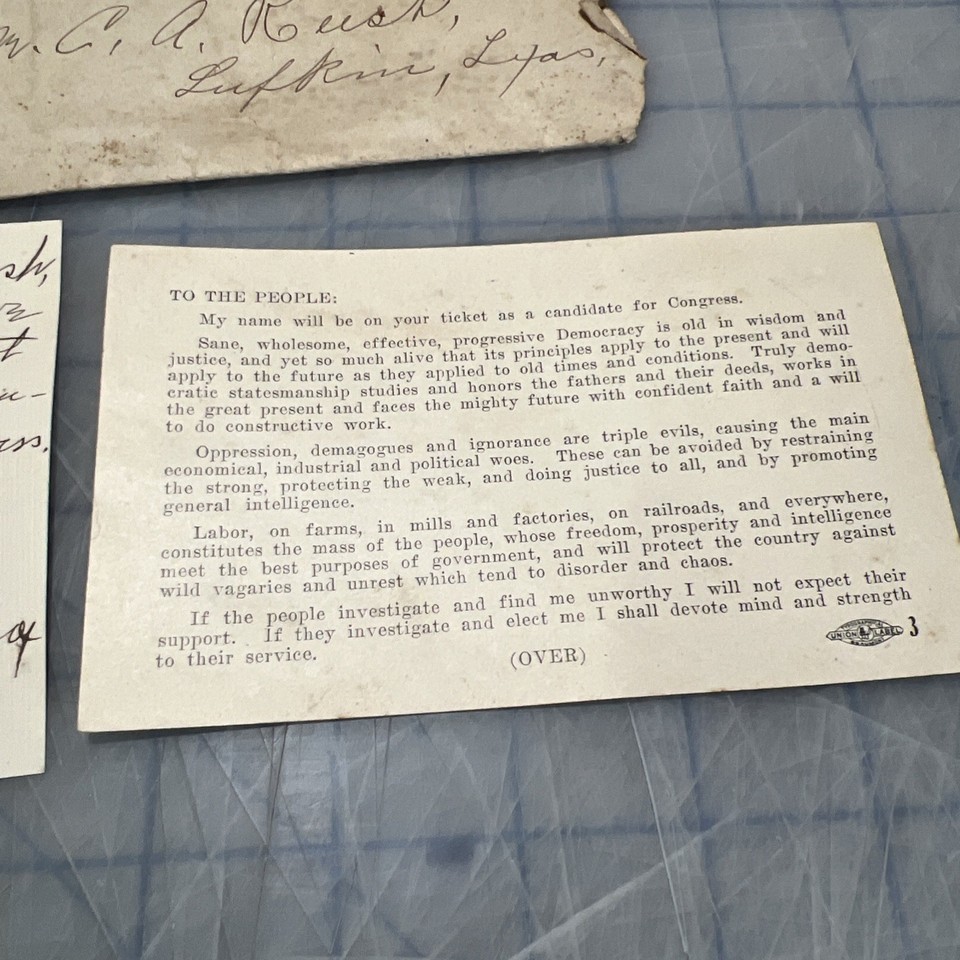 C. A. Rush,
Lufkin, Texas,
sh,
TO THE PEOPLE:
My name will be on your ticket as a candidate for Congress.
Sane, wholesome, effective, progressive Democracy is old in wisdom and
justice, and yet so much alive that its principles apply to the present and will
apply to the future as they applied to old times and conditions. Truly demo-
cratic statesmanship studies and honors the fathers and their deeds, works in
the great present and faces the mighty future with confident faith and a will
to do constructive work.
Oppression, demagogues and ignorance are triple evils, causing the main
economical, industrial and political woes. These can be avoided by restraining
the strong, protecting the weak, and doing justice to all, and by promoting
general intelligence.
Labor, on farms, in mills and factories, on railroads, and everywhere,
constitutes the mass of the people, whose freedom, prosperity and intelligence
meet the best purposes of government, and will protect the country against
wild vagaries and unrest which tend to disorder and chaos.
If the people investigate and find me unworthy I will not expect their
support. If they investigate and elect me I shall devote mind and strength
to their service.
(OVER)
UNION LABEL 3